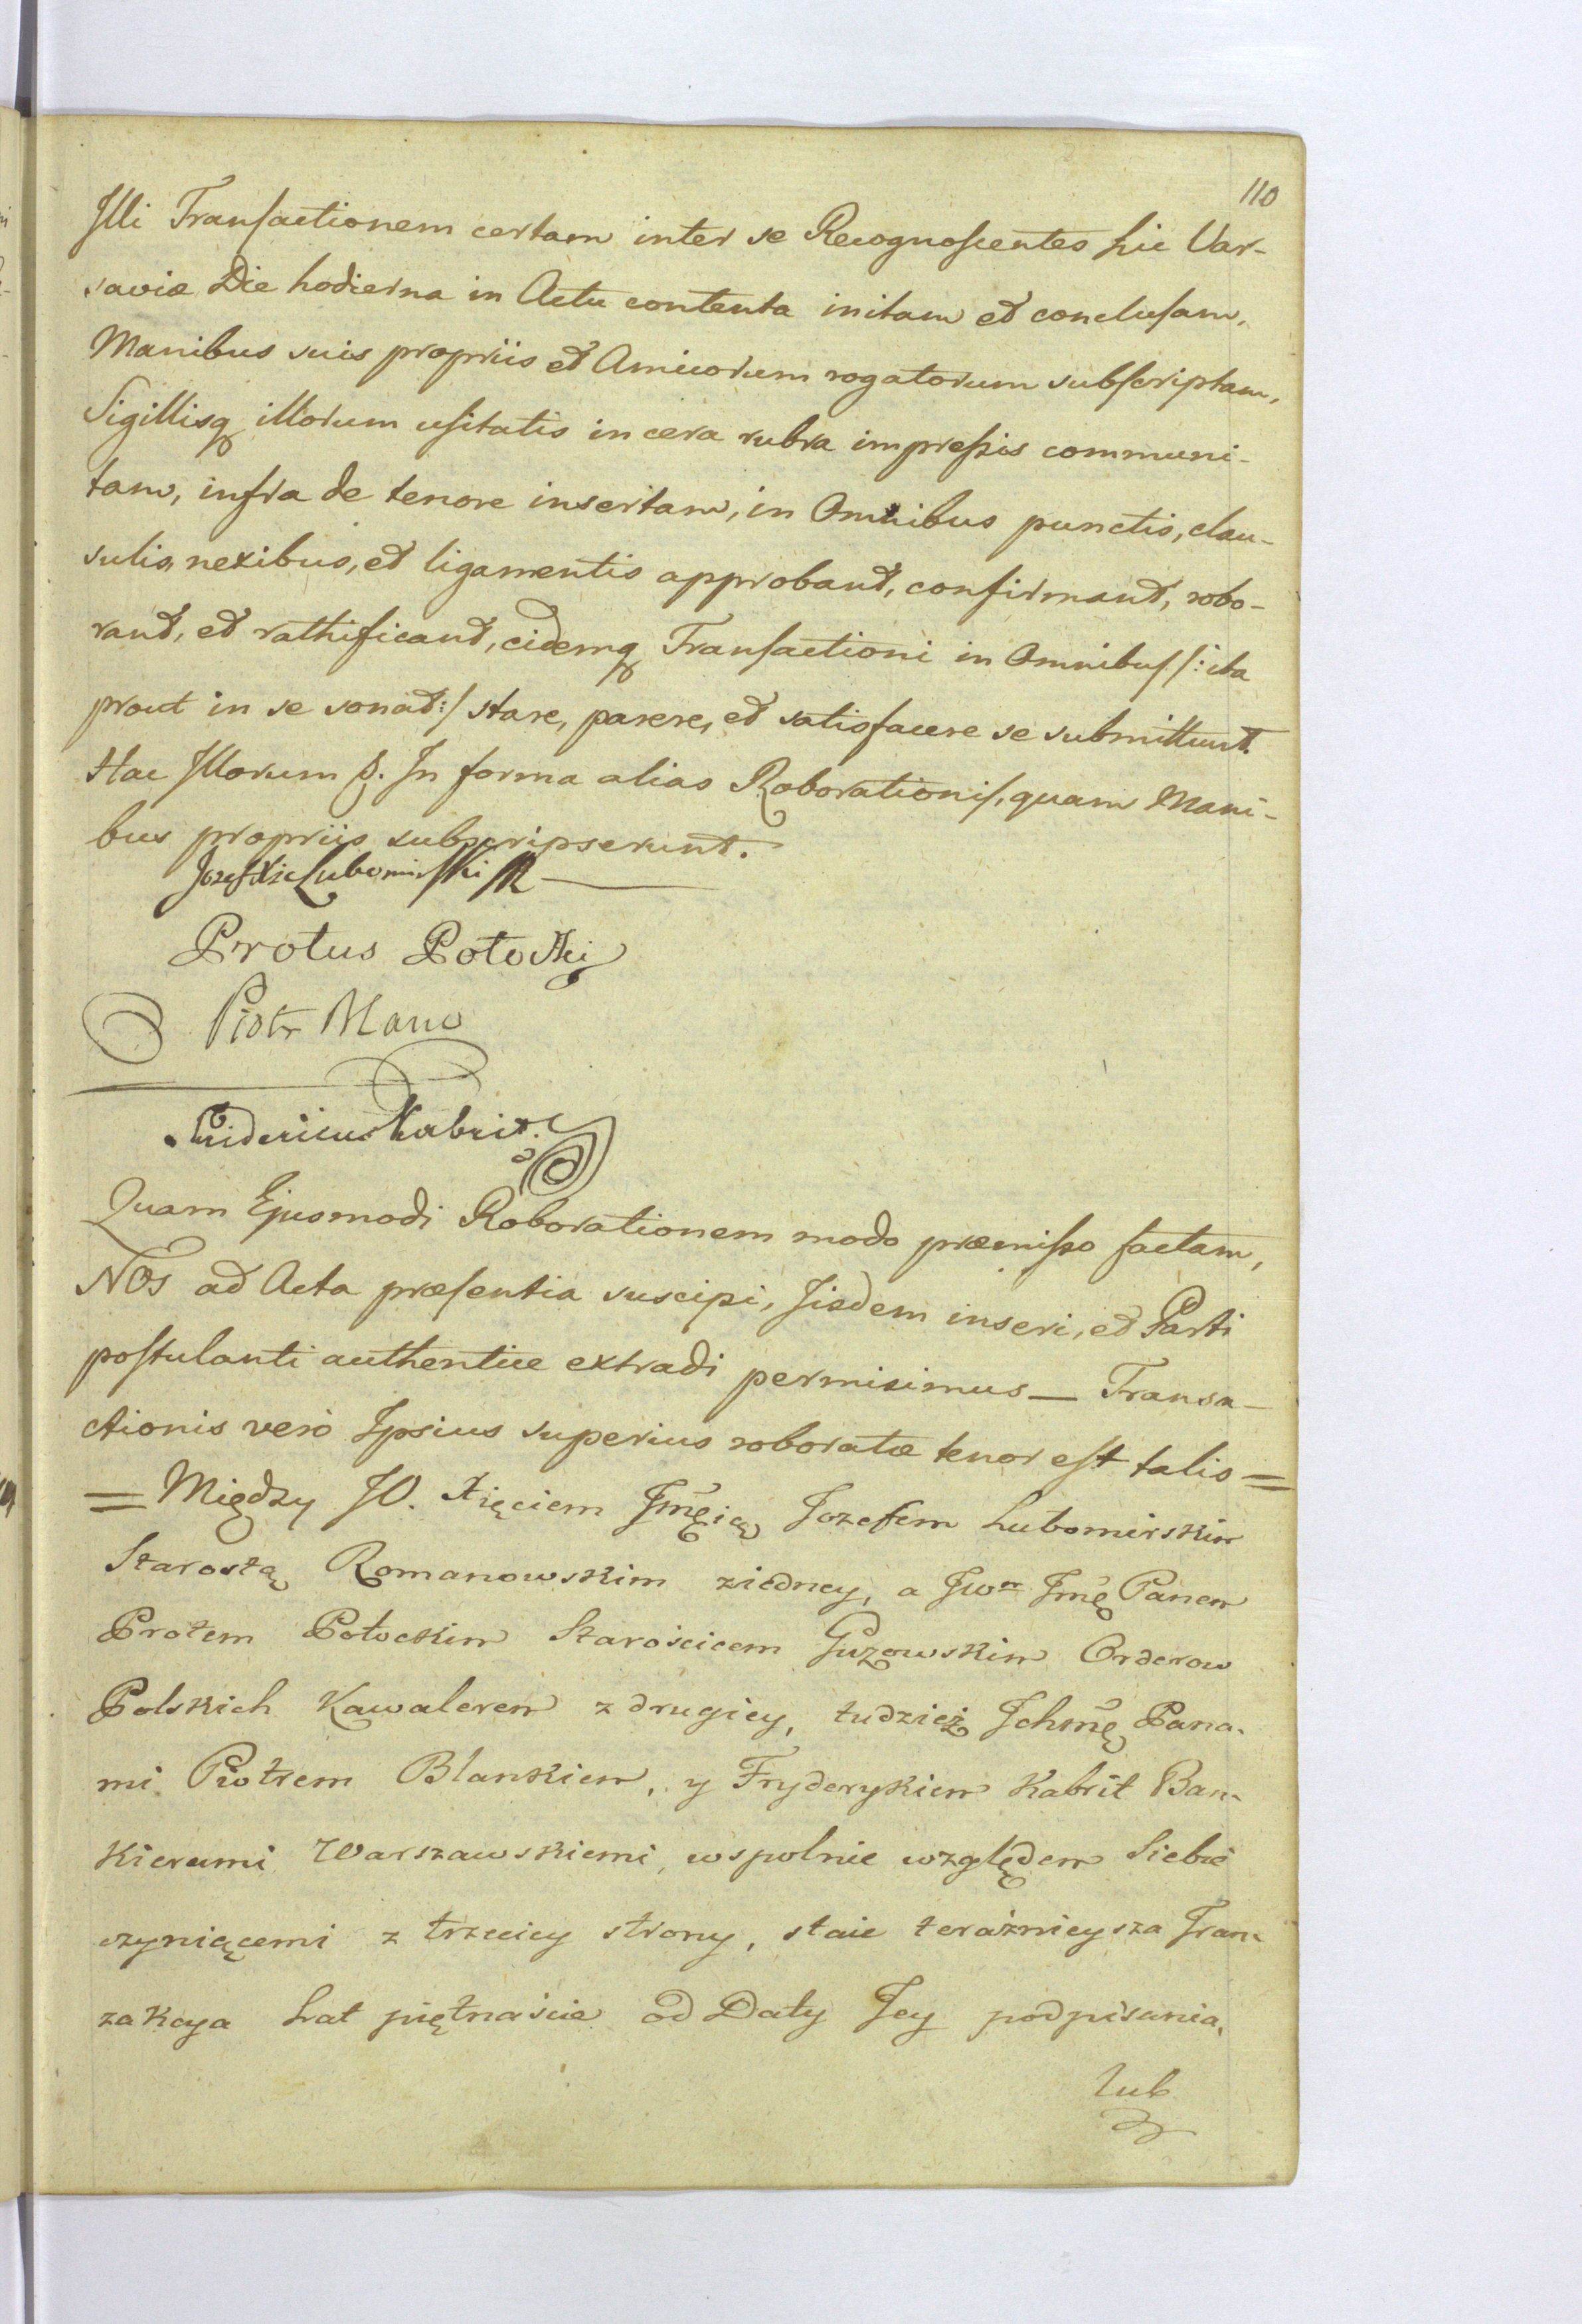 110
Illi Transactionem certam inter se Recognoscentes hic Var-
saviæ Die hodierna in Actu contenta initam et conclusam,
Manibus suis propriis et Amicorum rogatorum subscriptam,
Sigillisq illorum usitatis in cera rubra impressis communi-
tam, infra de tenore insertam, in Omnibus punctis, clau-
sulis, nexibus, et ligamentis approbant, confirmant, robo-
rant, et rathificant, eidemq Transactioni in Omnibus /: ita
prout in se sonat :/ stare, parere, et satisfacere se submittunt
Hac Illorum In forma alias Roborationis, quam Mani-
bus propriis subscripserunt.
Jozef Xże Lubomirski
Protus Potocki
Piotr Blanc
Fridericus Kabrit
Quam Ejusmodi Roborationem modo præmisso factam,
NOS ad Acta præsentia suscipi, Iisdem inseri, et Parti
postulanti authentice extradi permisimus — Transa-
ctionis verò Ipsius superius roboratæ tenor est talis =
= Między JO. Xięciem Jmścią Jozefem Lubomirskim
Starostą Romanowskim ziedney, a JWm Jmę Panem
Protem Potockim Starościcem Guzowskim Orderow
Polskich Kawalerem z drugiey, tudzież Ichmę Pana-
mi Piotrem Blankiem, y Fryderykiem Kabrit Ban-
kierami Warszawskiemi, wspolnie względem Siebie
czyniącemi z trzeciey strony, staie teraźnieysza Tran-
zakcya Lat piętnaście od Daty Jey podpisania,
lub